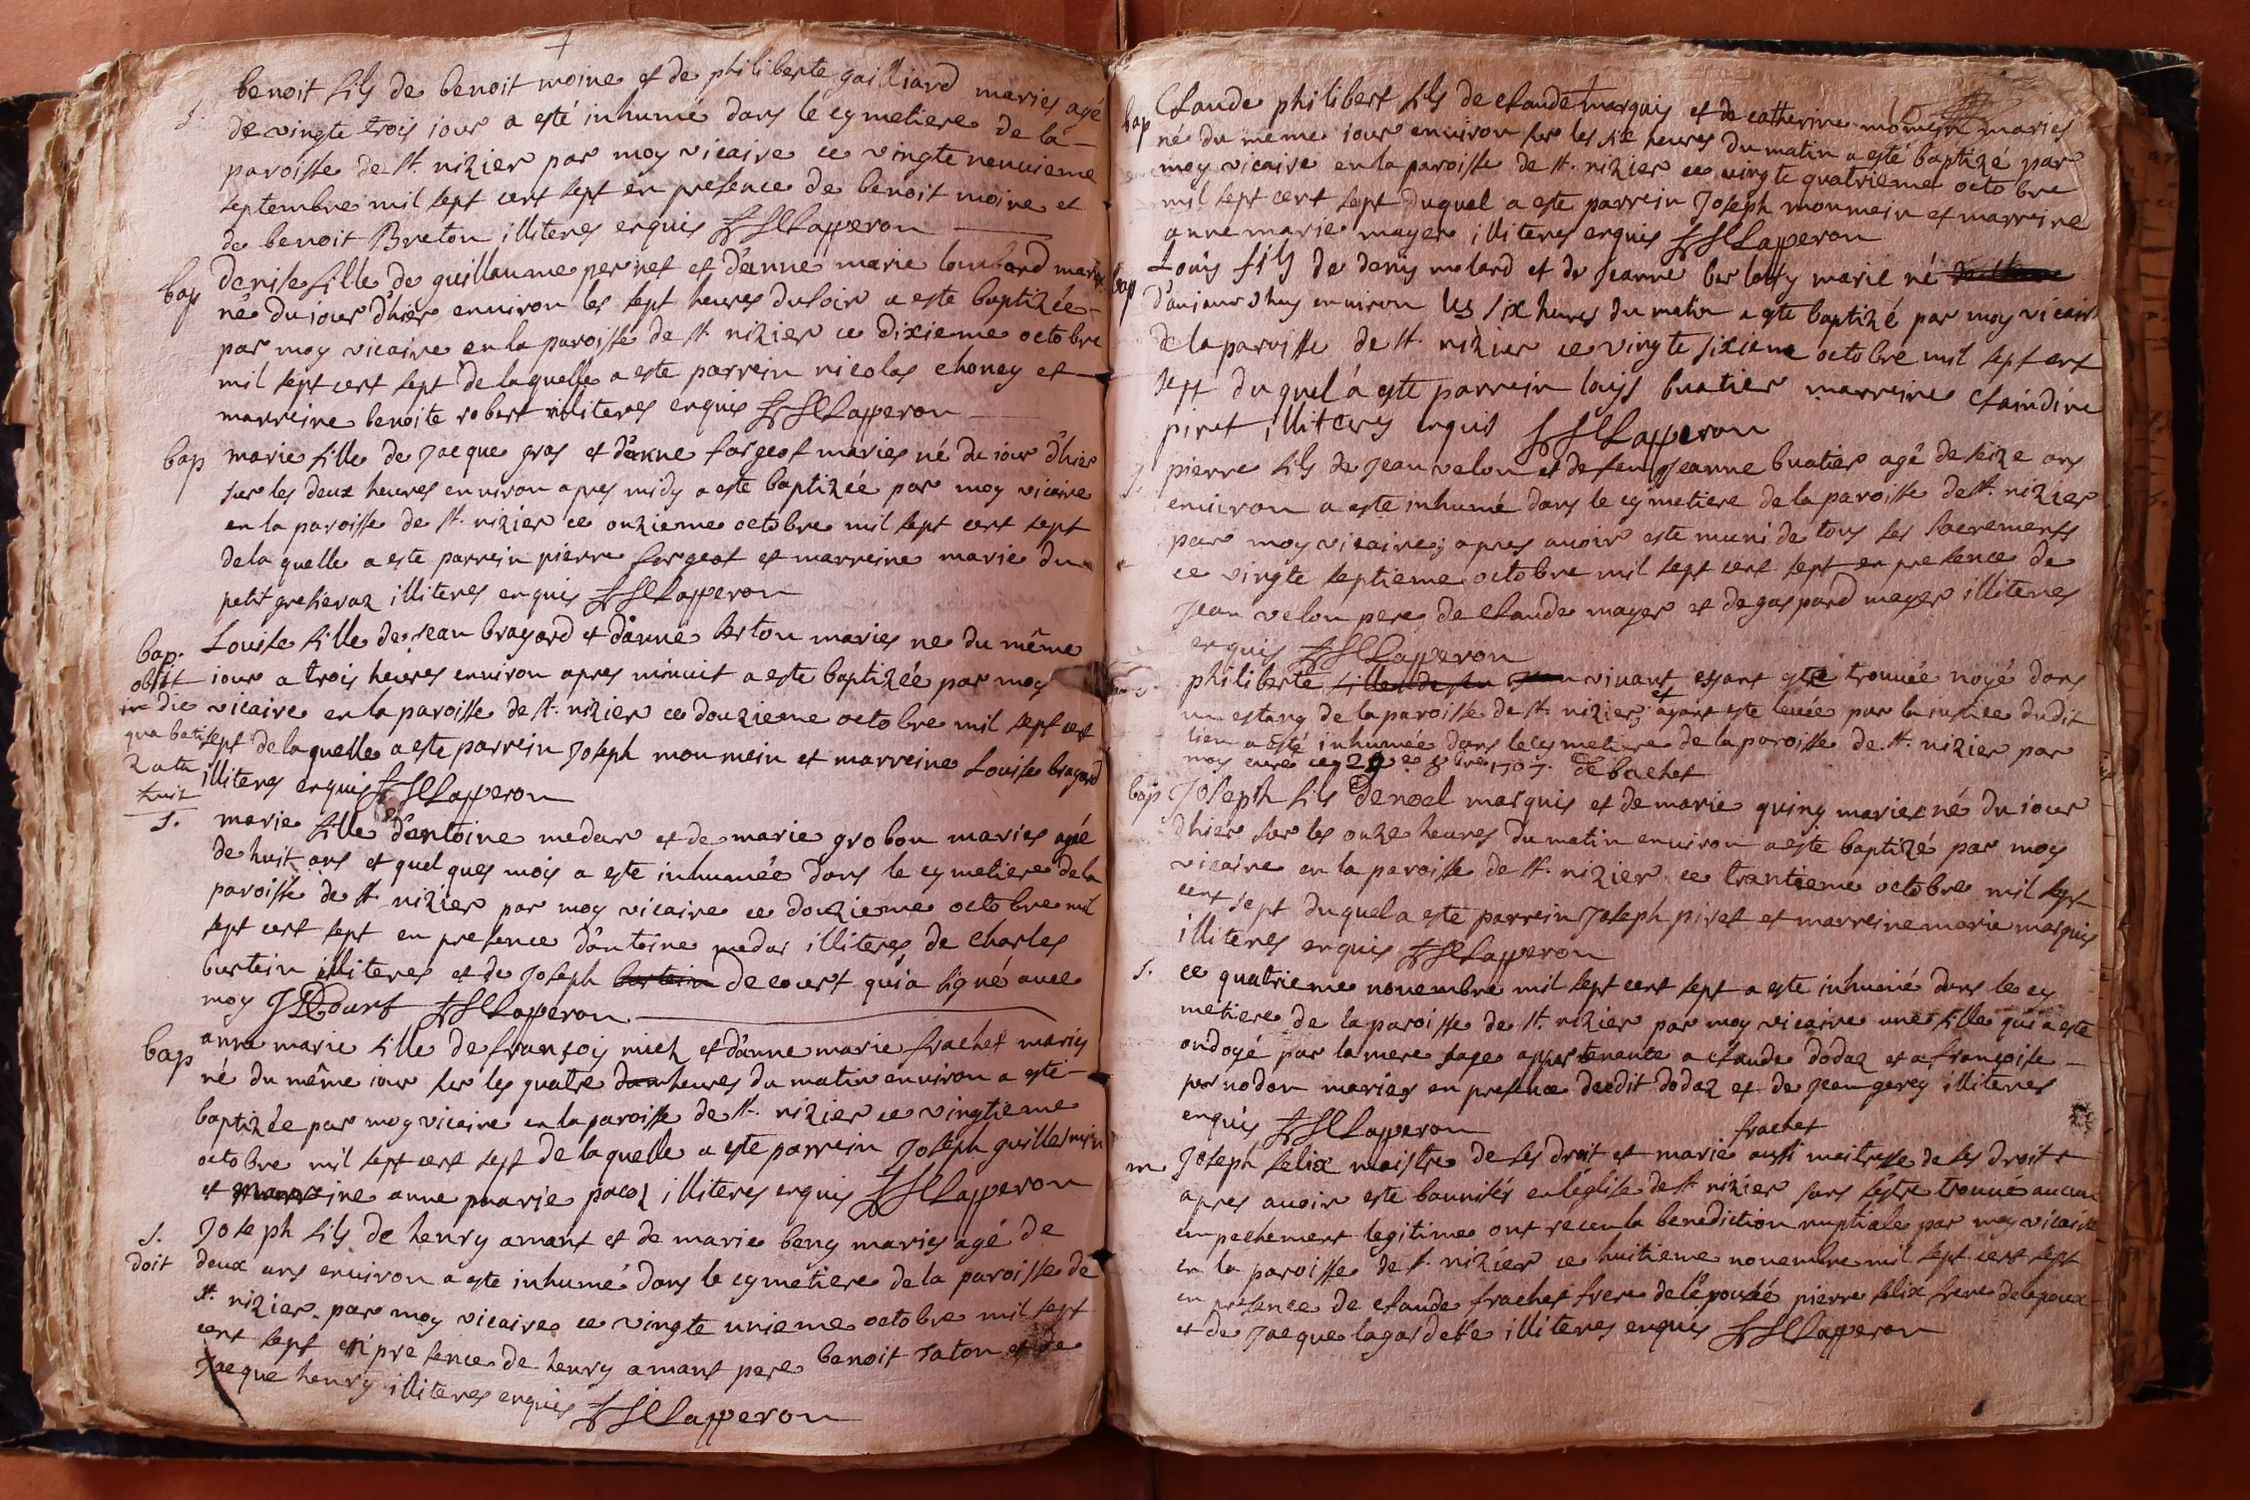 s.
benoit fils de benoit moine et de philiberte gailliard maries agé
de vingte trois jour a esté inhumé dans le cymetiere de la
paroisse de st. nizier par moy vicaire ce vingte neuuieme
septembre mil sept cent sept en presence de benoit moine et
de benoit Breton illiteres enquis Lapperon
bap
denise fille de guillaume pernet et d'anne marie lombard maries
né du jour d'hier enuiron les sept heures du soir a este baptizée
par moy vicaire en la paroisse de st. nizier ce dixieme octobre
mil sept cent sept de laquelle a este parrein nicolas choney et
marreine benoite robert illiteres enquis Lapperon
bap
marie fille de Jacque gras et d'anne fargeot maries né du iour d'hier
sur les deux heures enuiron apres midy a este baptizée par moy vicaire
en la paroisse de st. nizier ce onzieme octobre mil sept cent sept
de la quelle a este parrein pierre fargeot et marreine marie du
petit greheraz illiteres enquis Lapperon
bap.
obiit
in die
qua bati
zata
fuit
Louise fille de jean bragard et d'anne berton maries né du même
iour a trois heures enuiron apres minuit a este baptizée par moy
vicaire en la paroisse de st. nizier ce douzieme octobre mil sept cent
sept de la quelle a este parrein Joseph moumein et marreine Louise bragard
illiteres enquis Lapperon
s.
marie fille d'antoine medar et de marie grobon maries agé
de huit ans et quelques mois a este inhumée dans le cymetiere de la
paroisse de st. nizier par moy vicaire ce douzieme octobre mil
sept cent sept en presence d'antoine medar illiteres de Charles
burtein illiteres et de Joseph burtein de court qui a signé auec
moy J Decourt Lapperon
bap
anne marie fille de françois mich et d'anne marie frachet maries
né du même iour sur les quatre heures du matin enuiron a esté
baptizée par moy vicaire en la paroisse de st. nizier ce vingtieme
octobre mil sept cent sept de laquelle a este parrein Joseph guillermin
et marreine anne marie pacoz illiteres enquis Lapperon
s.
doit
Joseph fils de henry amant et de marie beny maries agé de
deux ans enuiron a este inhumé dans le cymetiere de la paroisse de
st. nizier par moy vicaire ce vingte unieme octobre mil sept
cent sept en presence de henry amant pere benoit raton et de
Jacque henry illiteres enquis Lapperon
bap
Claude philibert fils de claude marquis et de catherine momein maries
né du même iour enuiron sur les six heures du matin a esté baptizé par
moy vicaire en la paroisse de st. nizier ce vingte quatrieme octobre
mil sept cent sept duquel a este parrein Joseph moumein et marreine
anne marie mayer illiteres enquis Lapperon
bap
Louis fils de denis molard et de jeanne marie né
d'aujourdhuy enuiron les six heures du matin a este baptizé par moy vicaire
de la paroisse de st. nizier ce vingte sixieme octobre mil sept cent
sept du quel a este parrein louys buatier marreine claudine
piret illiteres enquis Lapperon
s.
pierre fils de Jean velon et de feu Jeanne buatier agé de seize ans
enuiron a este inhumé dans le cymetiere de la paroisse de st. nizier
par moy vicaire; apres auoir este muni de tous les sacrements
ce vingte septieme octobre mil sept cent sept en presence de
Jean velon pere de claude mayer et de gaspard mayer illiteres
enquis Lapperon
s.
philiberte fille de feu Jean viuant ayant esté trouuée noyé dans
un estang de la paroisse de st. nizier, et ayant este leuée par la iustice dudit
lieu a esté inhumée dans le cymetiere de la paroisse de st. nizier par
moy curé ce 29e 8bre 1707. Debachet
bap
Joseph fils de noel marquis et de marie quinq maries né du iour
d'hier sur les onze heures du matin enuiron a este baptizé par moy
vicaire en la paroisse de st. nizier ce trantieme octobre mil sept
cent sept duquel a este parrein Joseph piret et marreine marie marquis
illiteres enquis Lapperon
s.
ce quatrieme nouembre mil sept cent sept a este inhumé dans le cy
metiere de la paroisse de st. nizier par moy vicaire une fille qui a este
ondoyé par la mere sage appartenante a claude dodaz et a françoise
pernodon maries en presence dudit dodaz et de Jean gerey illiteres
enquis Lapperon
frachet
m
Joseph felix maistre de ses droit et marie aussi maitresse de ses droits
apres auoir este bannisés en l'eglise de st nizier sans s'estre trouué aucun
empechement legitime ont receu la benediction nuptiale par moy vicaire
en la paroisse de st. nizier ce huitieme nouembre mil sept cent sept
en presence de claude frachet frere de l'epousée pierre felix frere de l'epoux
et de Jacque lagardette illiteres enquis Lapperon